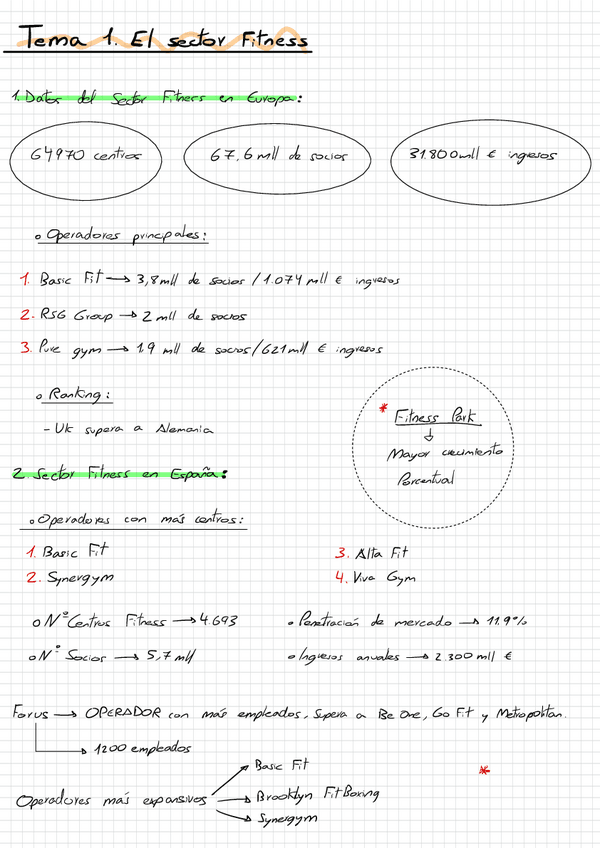 Tema 1. El sector Fitness
1. Datos del Sector Fitness en Europa:
64970 centros
67,6 mll de socios
31.800 mll € ingresos
• Operadores principales:
1. Basic Fit → 3,8 mll de socios / 1.074 mll € ingresos
2. RSG Group → 2 mll de socios
3. Pure gym → 1,9 mll de socios / 621 mll € ingresos
• Ranking:
- UK supera a Alemania
* Fitness Park
↓
Mayor crecimiento
Porcentual
2. Sector Fitness en España:
• Operadores con más centros:
1. Basic Fit
2. Synergym
3. Alta Fit
4. Viva Gym
• Nº Centros Fitness → 4.693
• Nº Socios → 5,7 mll
• Penetración de mercado → 11,9%
• Ingresos anuales → 2.300 mll €
Forus → OPERADOR con más empleados, Supera a Be One, Go Fit y Metropolitan.
→ 1200 empleados
Operadores más expansivos
→ Basic Fit
→ Brooklyn FitBoxing
→ Synergym
*